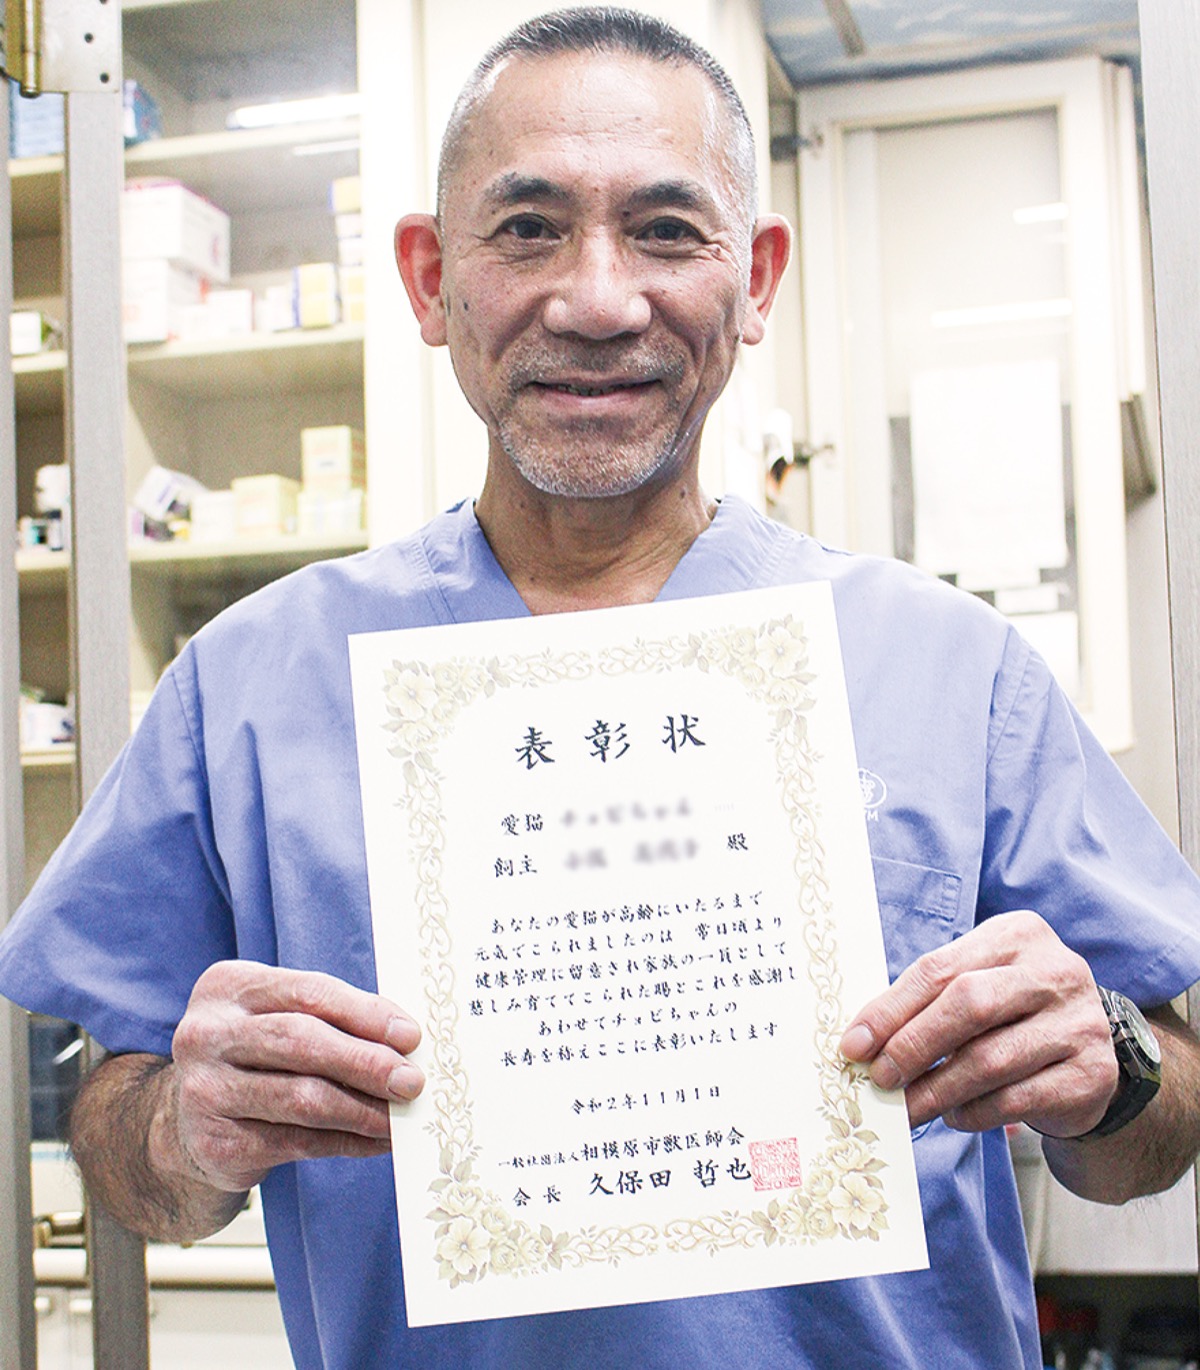 表彰状
愛猫
飼主 殿
あなたの愛猫が高齢にいたるまで
元気でこられましたのは 常日頃より
健康管理に留意され家族の一員として
慈しみ育ててこられた賜とこれを感謝し
あわせてチョビちゃんの
長寿を称えここに表彰いたします
令和2年11月1日
一般社団法人相模原市獣医師会
会長 久保田 哲也